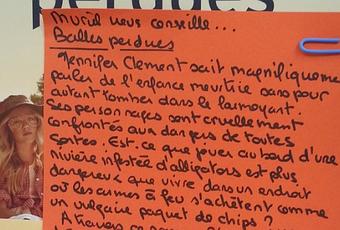 perdues
Muriel vous conseille...
Balles perdues
Jennifer Clement sait magnifiqueme
parler de l'enfance meurtrie sans pour
autant tomber dans le larmoyant.
Ses personnages sont cruellement
confrontés aux dangers de toutes
sortes. Est-ce que jouer au bord d'une
rivière infestée d'alligators est plus
dangereux que vivre dans un endroit
où les armes à feu s'achètent comme
un vulgaire paquet de chips ?
A travers ce